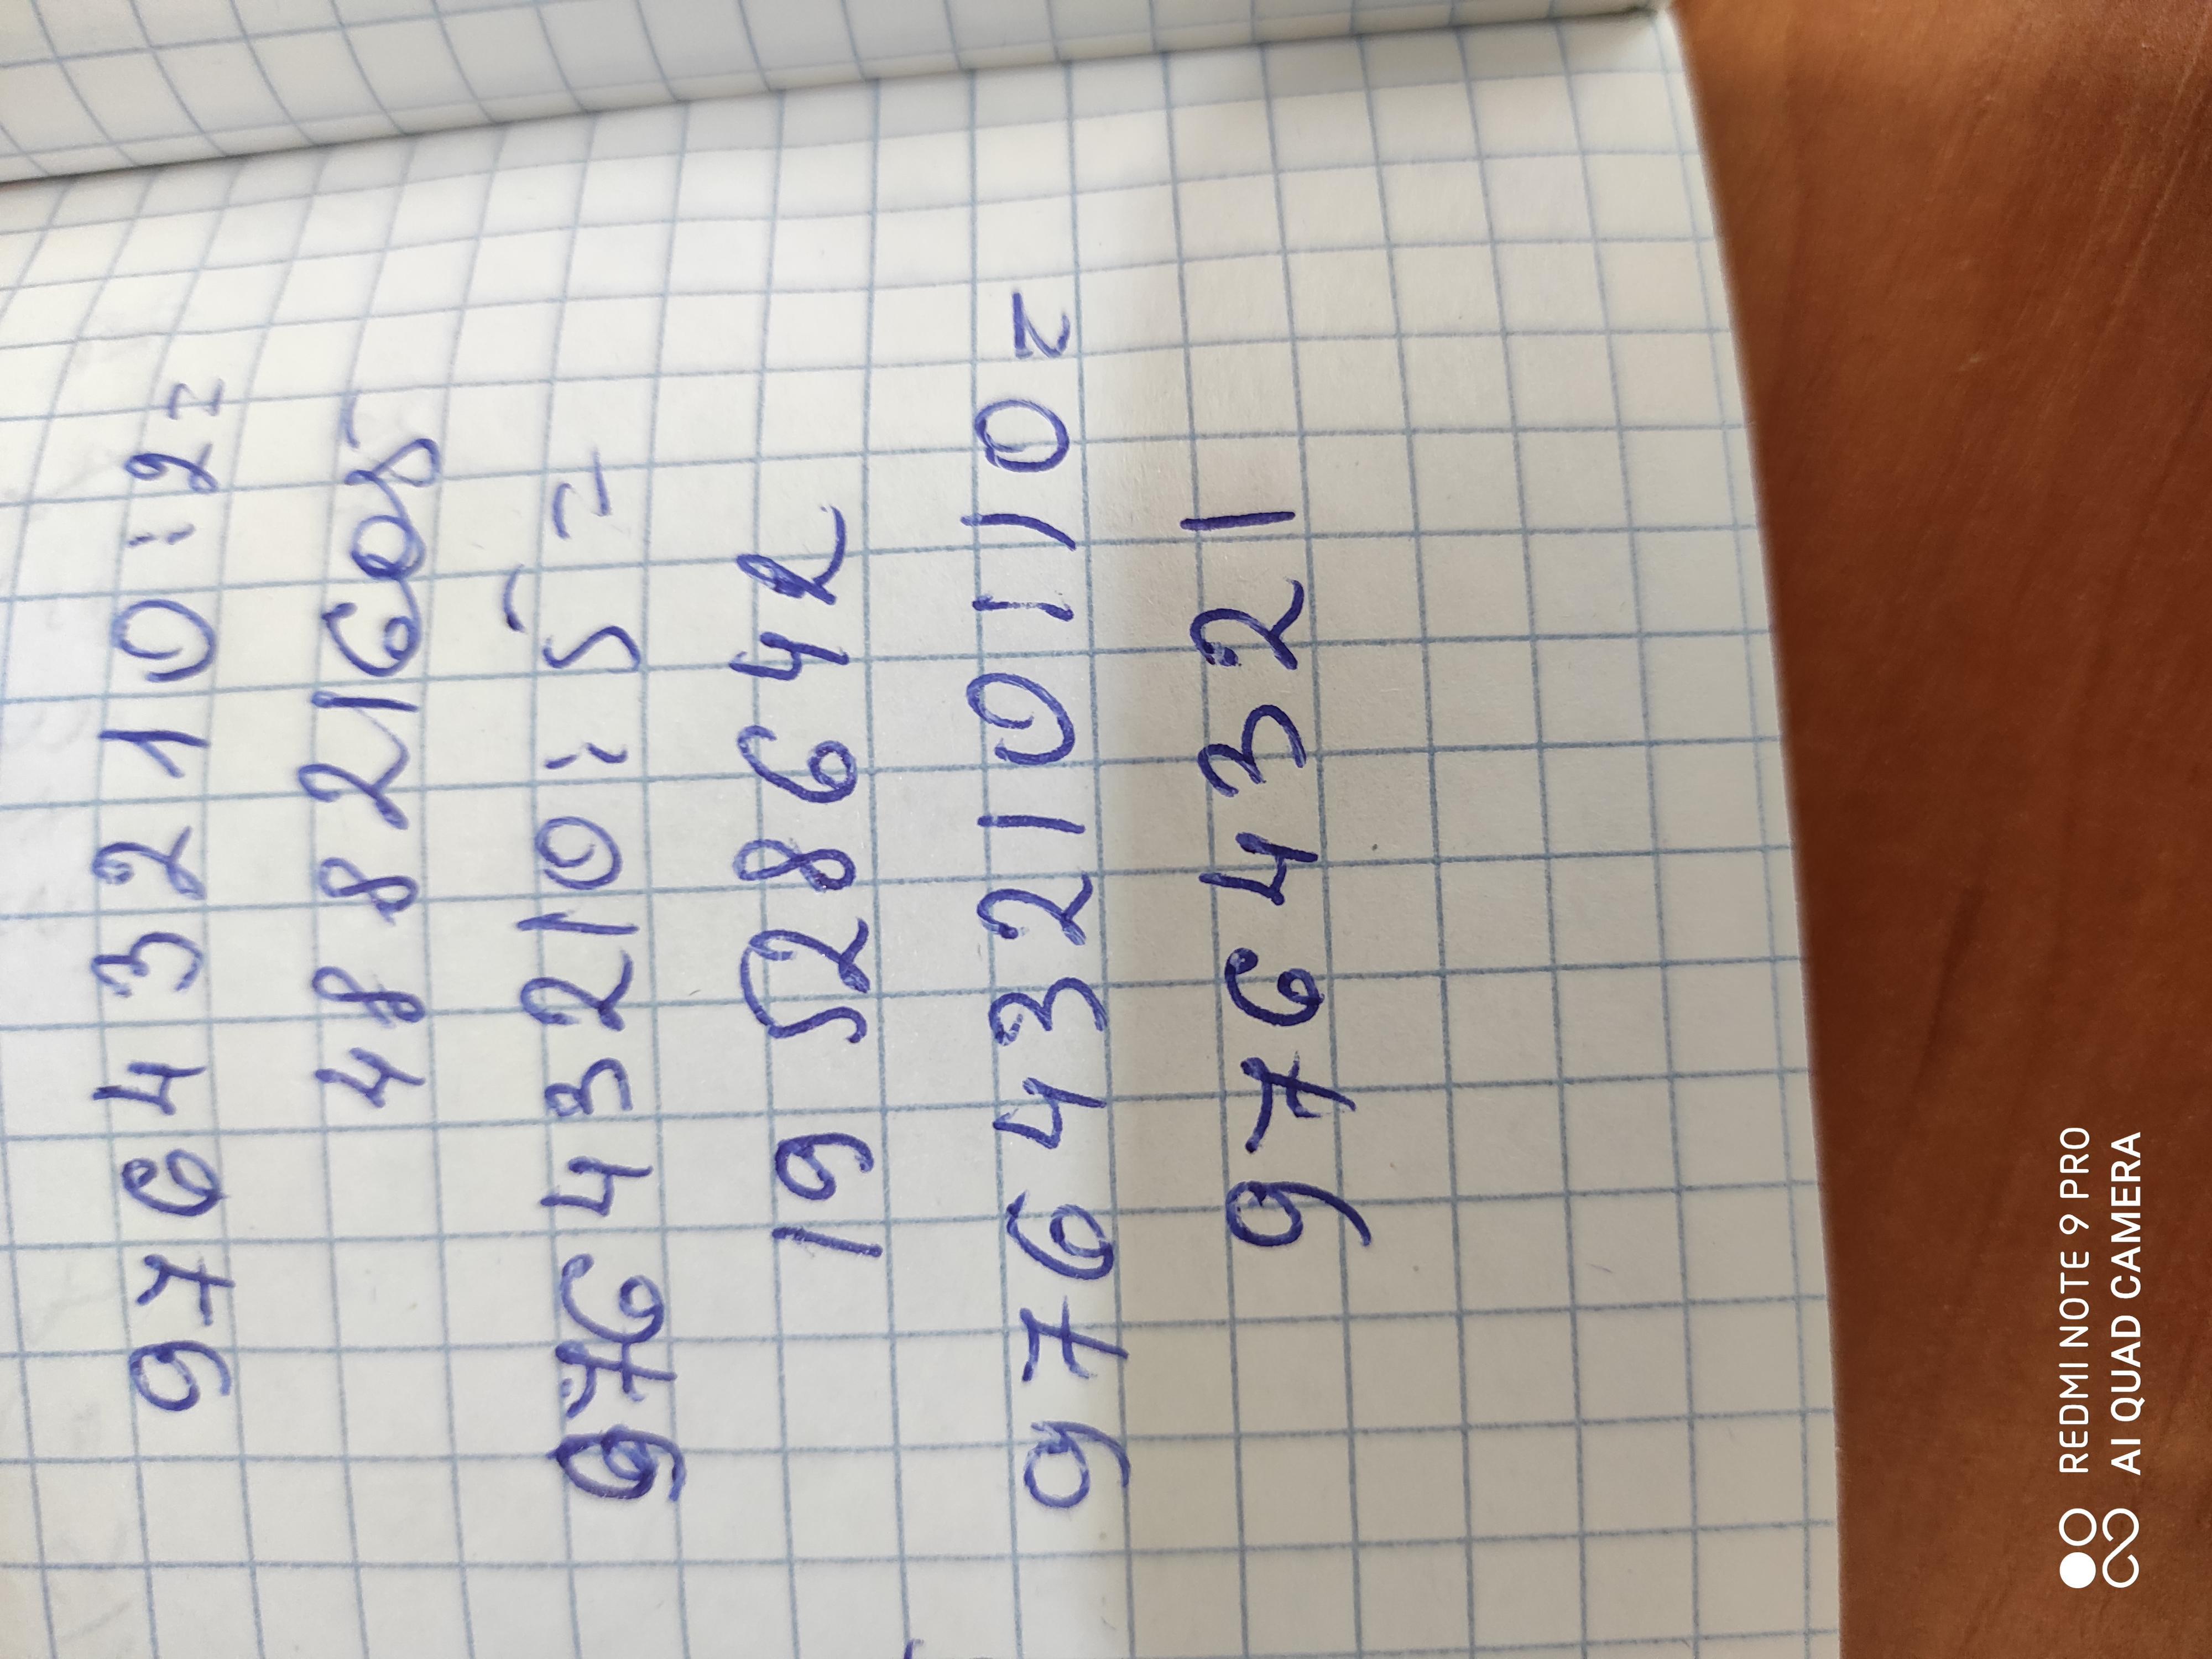 97643210:2=
48821605
97643210:5=
19528642
97643210:10=
9764321
REDMI NOTE 9 PRO
AI QUAD CAMERA